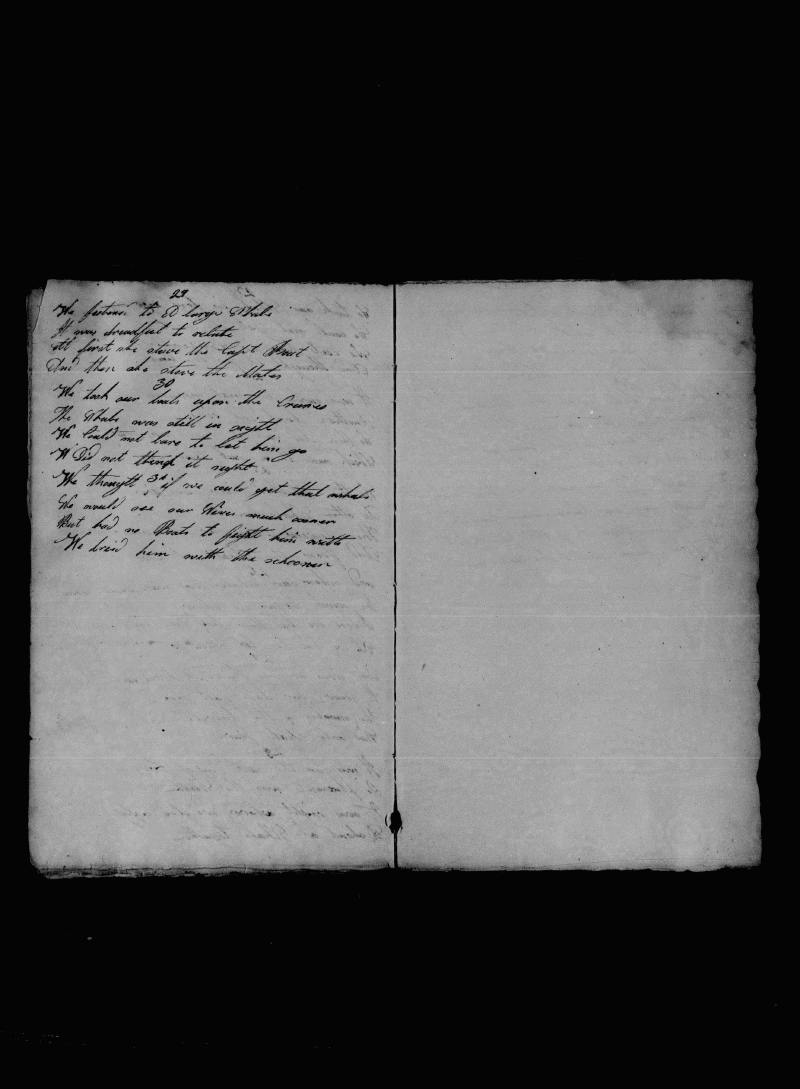 29
We fastened to A large Whale
It was dreadful to relate
At first she stove the Capt Boat
And then she stove the Mates
30
We took our boats upon the Cranes
The Whale was still in sight
We Could not bare to let him go
W Did not think it right
We thought 31 if we could get that whale
We would see our Wives much sooner
But had no Boats to fight him with
We tried him with the schooner